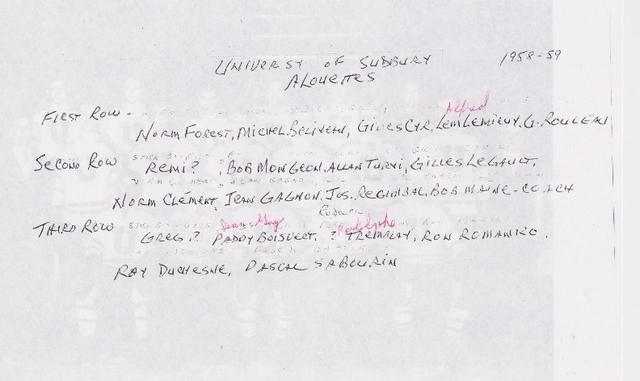 UNIVERSITY OF SUDBURY 1958-59
ALOUETTES
FIRST ROW -
Alfred
NORM FOREST, MICHEL BELIVEAU, GILLES CYR, LEM LEMIEUX, G. ROULEAU
SECOND ROW REMI? , BOB MONGEON, ALLAN TURMI, GILLES LEGAULT,
NORM CLÉMENT, JEAN GAGNON, JOS. REGIMBAL, BOB MAINE - COACH
THIRD ROW GREG.? PADDY BOISVERT, ? TREMBLAY, RON ROMANKO,
RAY DUCHESNE, PASCAL SABOURIN